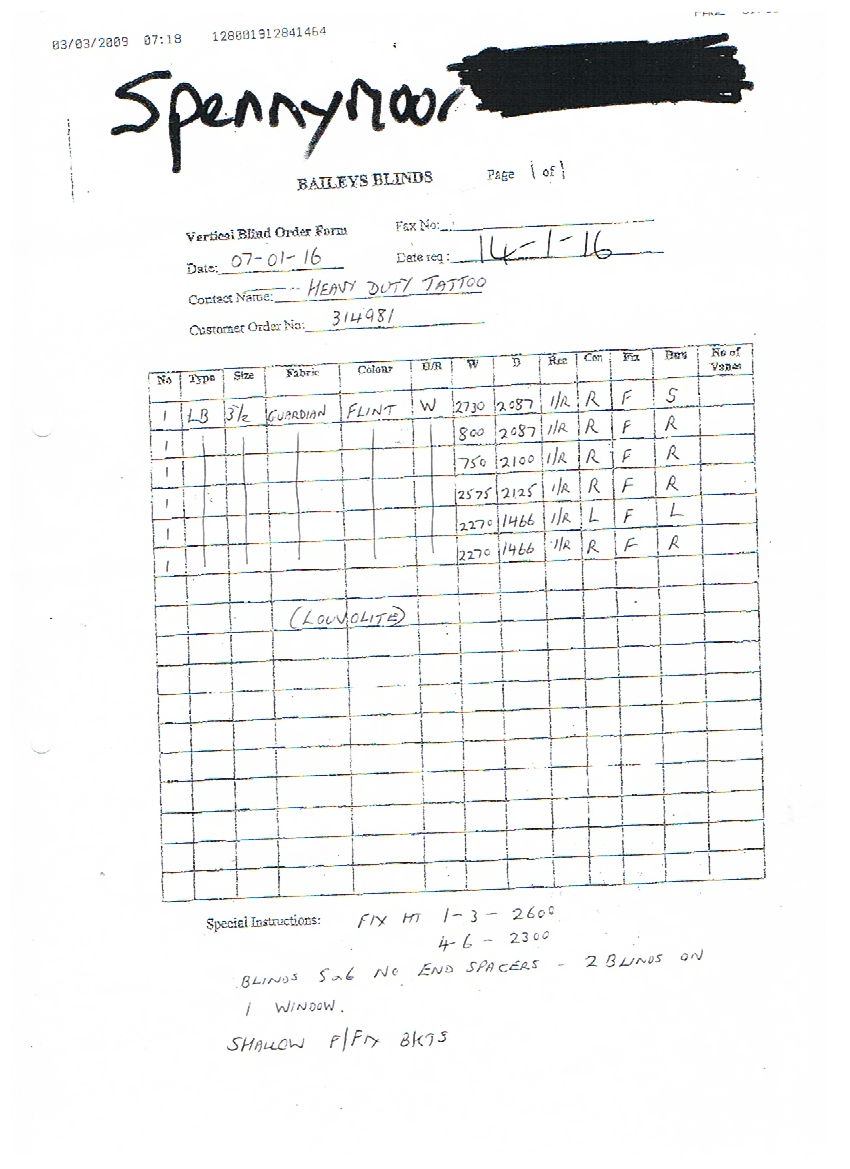 03/03/2009 07:18 128001912841464
Spennymoor
BAILEYS BLINDS Page 1 of 1
Vertical Blind Order Form Fax No:
Date: 07-01-16 Date req: 14-1-16
Contact Name: HEAVY DUTY TATTOO
Customer Order No: 314981
No Type Size Fabric Colour W D Rec Con Fix No of Vanes
1 LB 3½ GUARDIAN FLINT W 2730 2087 1/R R F S
1 800 2087 1/R R F R
1 750 2100 1/R R F R
1 2575 2125 1/R R F R
1 2270 1466 1/R L F L
1 2270 1466 1/R R F R
(LOUVOLITE)
Special Instructions: FIX HT 1-3 - 2600
4-6 - 2300
BLINDS 5 & 6 NO END SPACERS - 2 BLINDS ON
1 WINDOW.
SHALLOW F/FIX BKTS